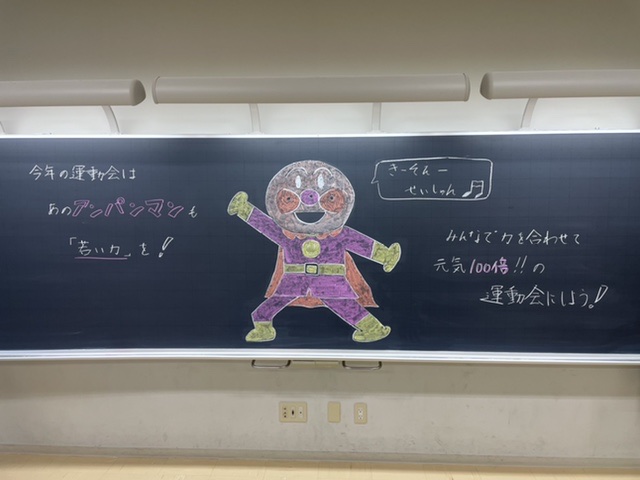 今年の運動会は
あのアンパンマンも
「若い力」を!
さーそんー
せいしゅん♫
みんなで力を合わせて
元気100倍!!の
運動会にしよう!